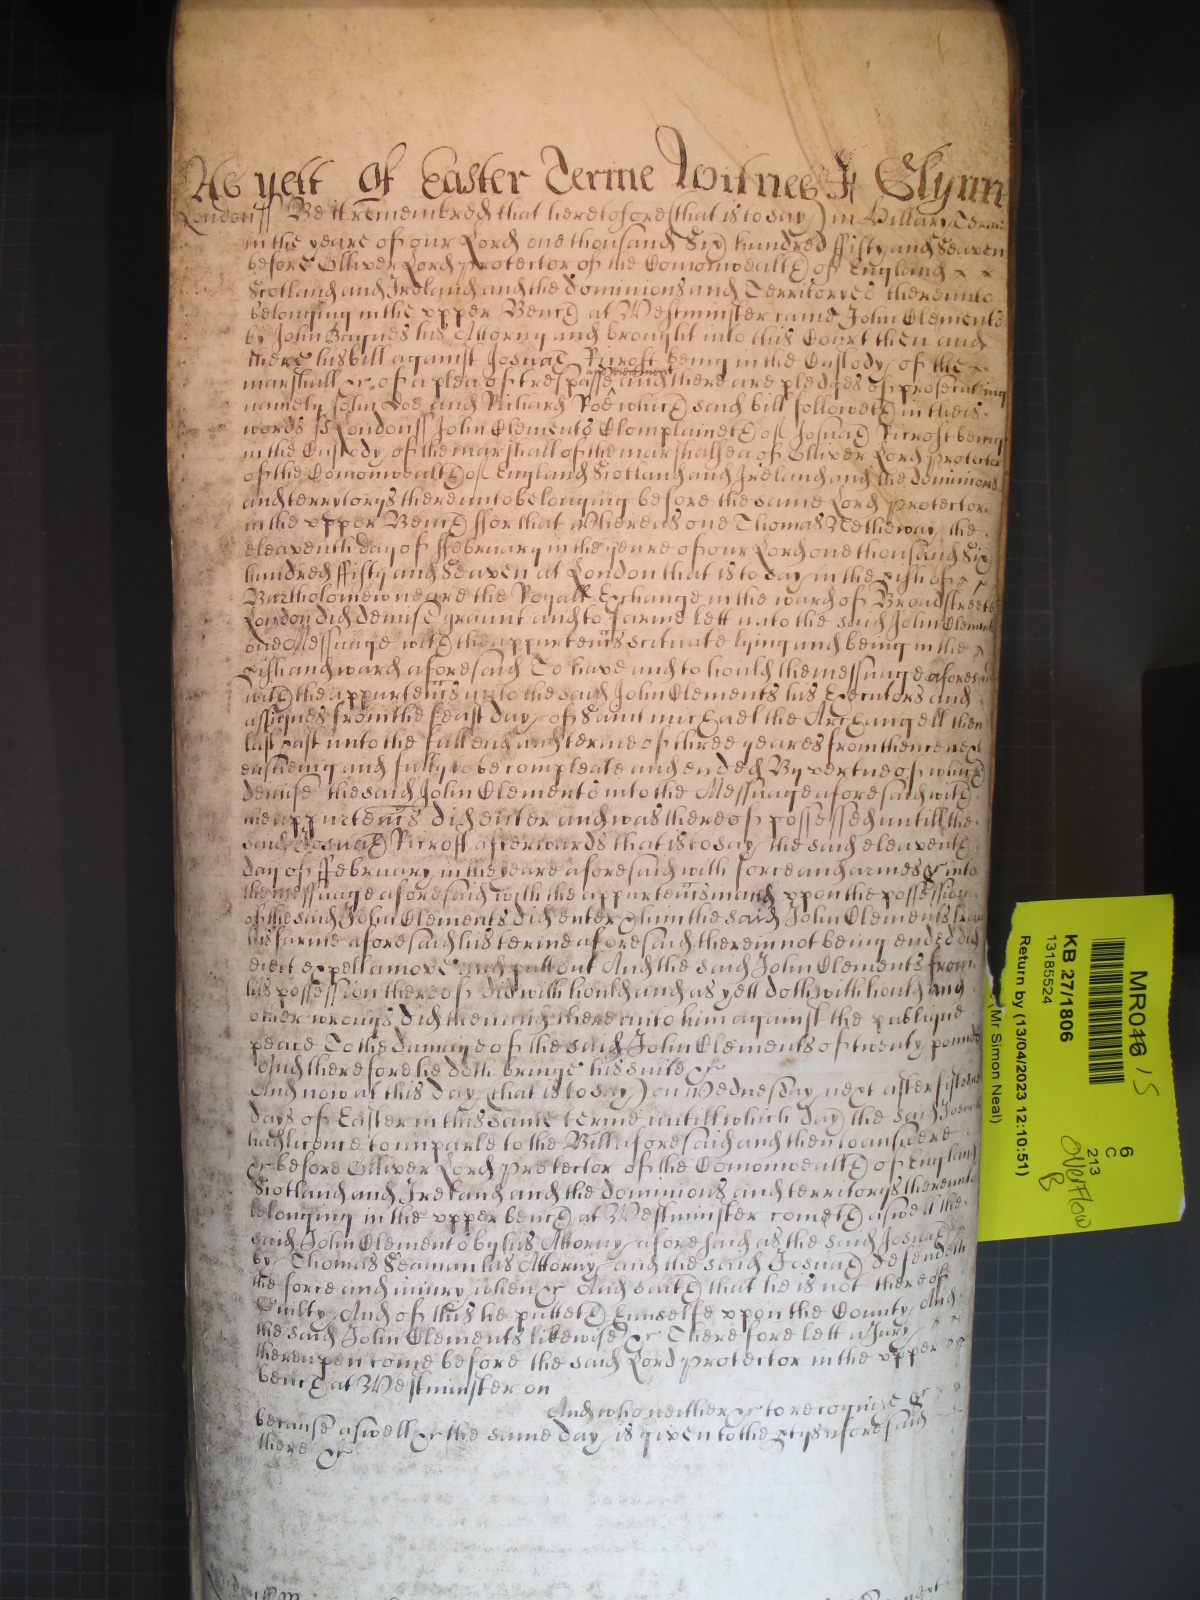 As yett Of Easter Terme Witnes J Glynn
London ss Be it remembred that heretofore (that is to say) in Hillary Terme
in the yeare of our Lord one thousand Six hundred ffifty and Seaven
before Olliver Lord Protector of the Comonwealth of England
Scotland and Ireland and the dominions and Territoryes thereunto
belonging in the upper Bench at Westminster came John Clements
by John Baynes his Attorny and brought into this Court then and
there his bill against Josuah Ricroft being in the Custody of the
marshall &c of a plea of trespasse and eiectment and there are pledges of prosecuting
namely John Doe and Richard Roe which said bill followeth in theis
words ss London ss John Clements Complaineth of Josuah Ricroft being
in the Custody of the marshall of the marshalsea of Olliver Lord Protector
of the Comonwealth of England Scotland and Ireland and the dominions
and territorys thereunto belonging before the same Lord Protector
in the upper Bench ffor that Whereas one Thomas Netheway the
eleaventh day of ffebruary in the yeare of our Lord one thousand Six
hundred ffifty and Seaven at London that is to say in the pish of
Bartholomew neare the Royall Exchange in the ward of Broadstreete
London did demise graunt and to farme lett unto the said John Clements
one Messuage with the appurtenns scituate lying and being in the
pish and ward aforesaid To have and to hould the messuage aforesaid
with the appurtenns unto the said John Clements his Executors and
assignes from the feast day of Saint michael the Archangell then
last past unto the full end and terme of three yeares from thence next
ensueing and fully to be compleate and ended By vertue of which
demise the said John Clements into the Messuage aforesaid with
the appurtenns did enter and was thereof possessed untill the
said Josuah Ricroft afterwards that is to say the said eleaventh
day of ffebruary in the yeare aforesaid with force and armes &c into
the messuage aforesaid with the appurtenns in and uppon the possession
of the said John Clements did enter & him the said John Clements from
his farme aforesaid his terme aforesaid therein not being ended did
eiect expell amove and putt out And the said John Clements from
his possession thereof did with hould and as yett doth with hould And
other wrongs did then and there unto him against the publique
peace To the damage of the said John Clements of twenty pounds
And therefore he doth bringe his suite &c
And now at this day (that is to say) on Wednesday next after fifteene
dayes of Easter in this same terme untill which day the said Josuah
had licence to imparle to the Bill aforesaid and then to answere
&c before Olliver Lord Protector of the Comonwealth of England
Scotland and Ireland and the dominions and territorys thereunto
belonging in the upper bench at Westminster cometh aswell the
said John Clements by his Attorny aforesaid as the said Josuah
by Thomas Seaman his Attorny and the said Josuah defendeth
the force and iniury when &c And saith that he is not thereof
Guilty And of this he putteth himselfe uppon the County And
the said John Clements likewise &c Therefore lett a Jury
thereupon come before the said Lord Protector in the upper
bench at Westminster on
And who neither &c to recognize &c
because aswell &c the same day is given to the ptys aforesaid
there &c
MR046 15
KB 27/1806
13185524
Return by (13/04/2023 12:10:51)
(Mr Simon Neal)
6
C
213
Overflow
B